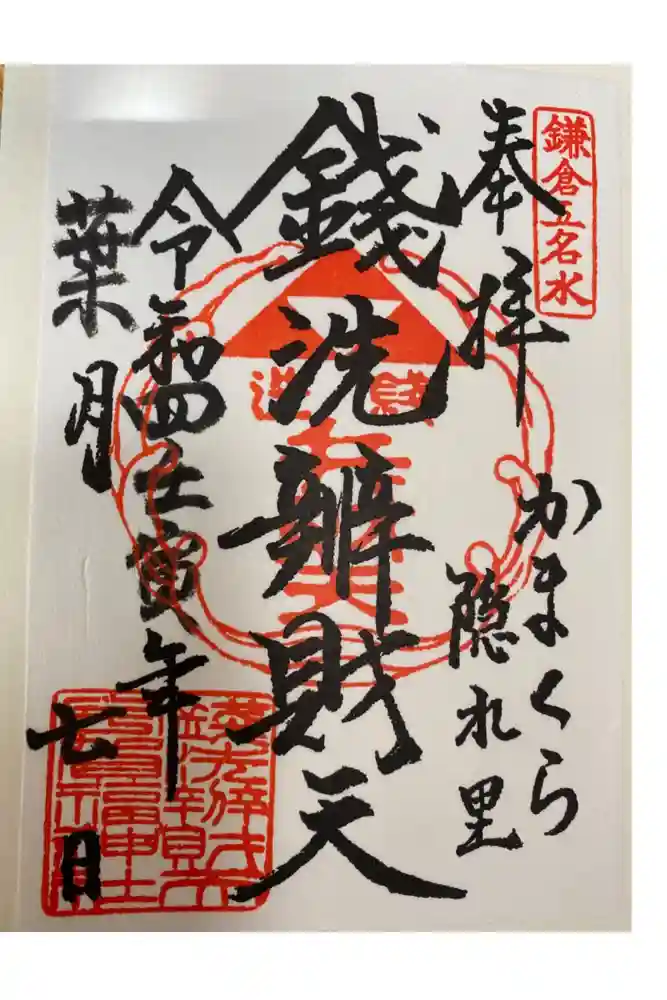 鎌倉五名水
奉拝
かまくら
隠れ里
銭洗
銭洗辨財天
令和四壬寅年
葉月
七日